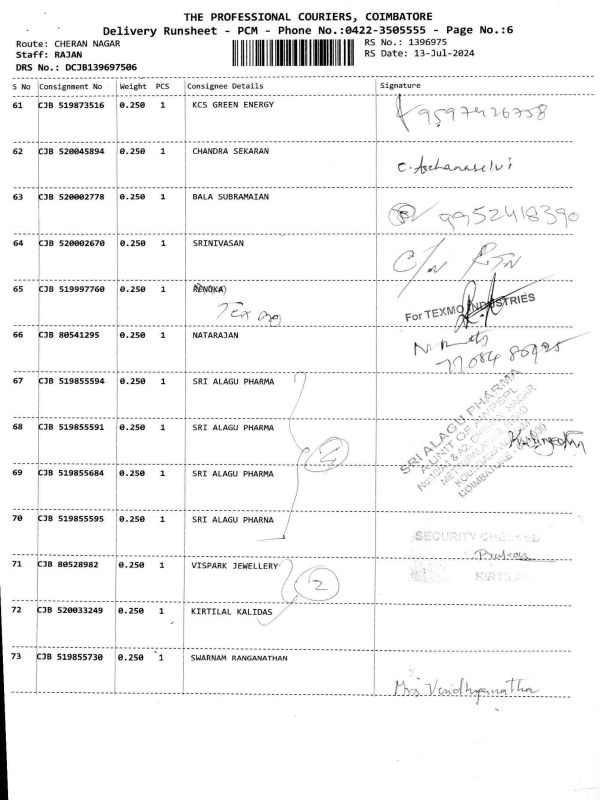 THE PROFESSIONAL COURIERS, COIMBATORE
Delivery Runsheet - PCM - Phone No.:0422-3505555 - Page No.:6
Route: CHERAN NAGAR
RS No.: 1396975
Staff: RAJAN
RS Date: 13-Jul-2024
DRS No.: DCJB139697506
S No Consignment No Weight PCS Consignee Details Signature
61 CJB 519873516 0.250 1 KCS GREEN ENERGY
9597926758
62 CJB 520045894 0.250 1 CHANDRA SEKARAN
C. Archanaselvi
63 CJB 520002778 0.250 1 BALA SUBRAMAIAN
9952418390
64 CJB 520002670 0.250 1 SRINIVASAN
C/N RTN
65 CJB 519997760 0.250 1 RENUKA
For TEXMO INDUSTRIES
66 CJB 80541295 0.250 1 NATARAJAN
67 CJB 519855594 0.250 1 SRI ALAGU PHARMA
68 CJB 519855591 0.250 1 SRI ALAGU PHARMA
SRI ALAGU PHARMA
A UNIT OF
69 CJB 519855684 0.250 1 SRI ALAGU PHARMA
COIMBATORE -
70 CJB 519855595 0.250 1 SRI ALAGU PHARNA
SECURITY CHECKED
71 CJB 80528982 0.250 1 VISPARK JEWELLERY
2
72 CJB 520033249 0.250 1 KIRTILAL KALIDAS
73 CJB 519855730 0.250 1 SWARNAM RANGANATHAN